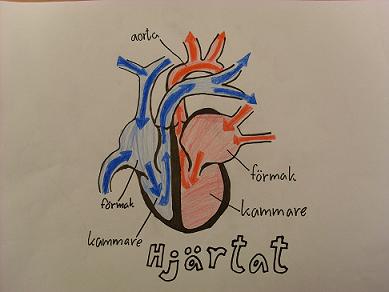 aorta
förmak
förmak
kammare
kammare
Hjärtat